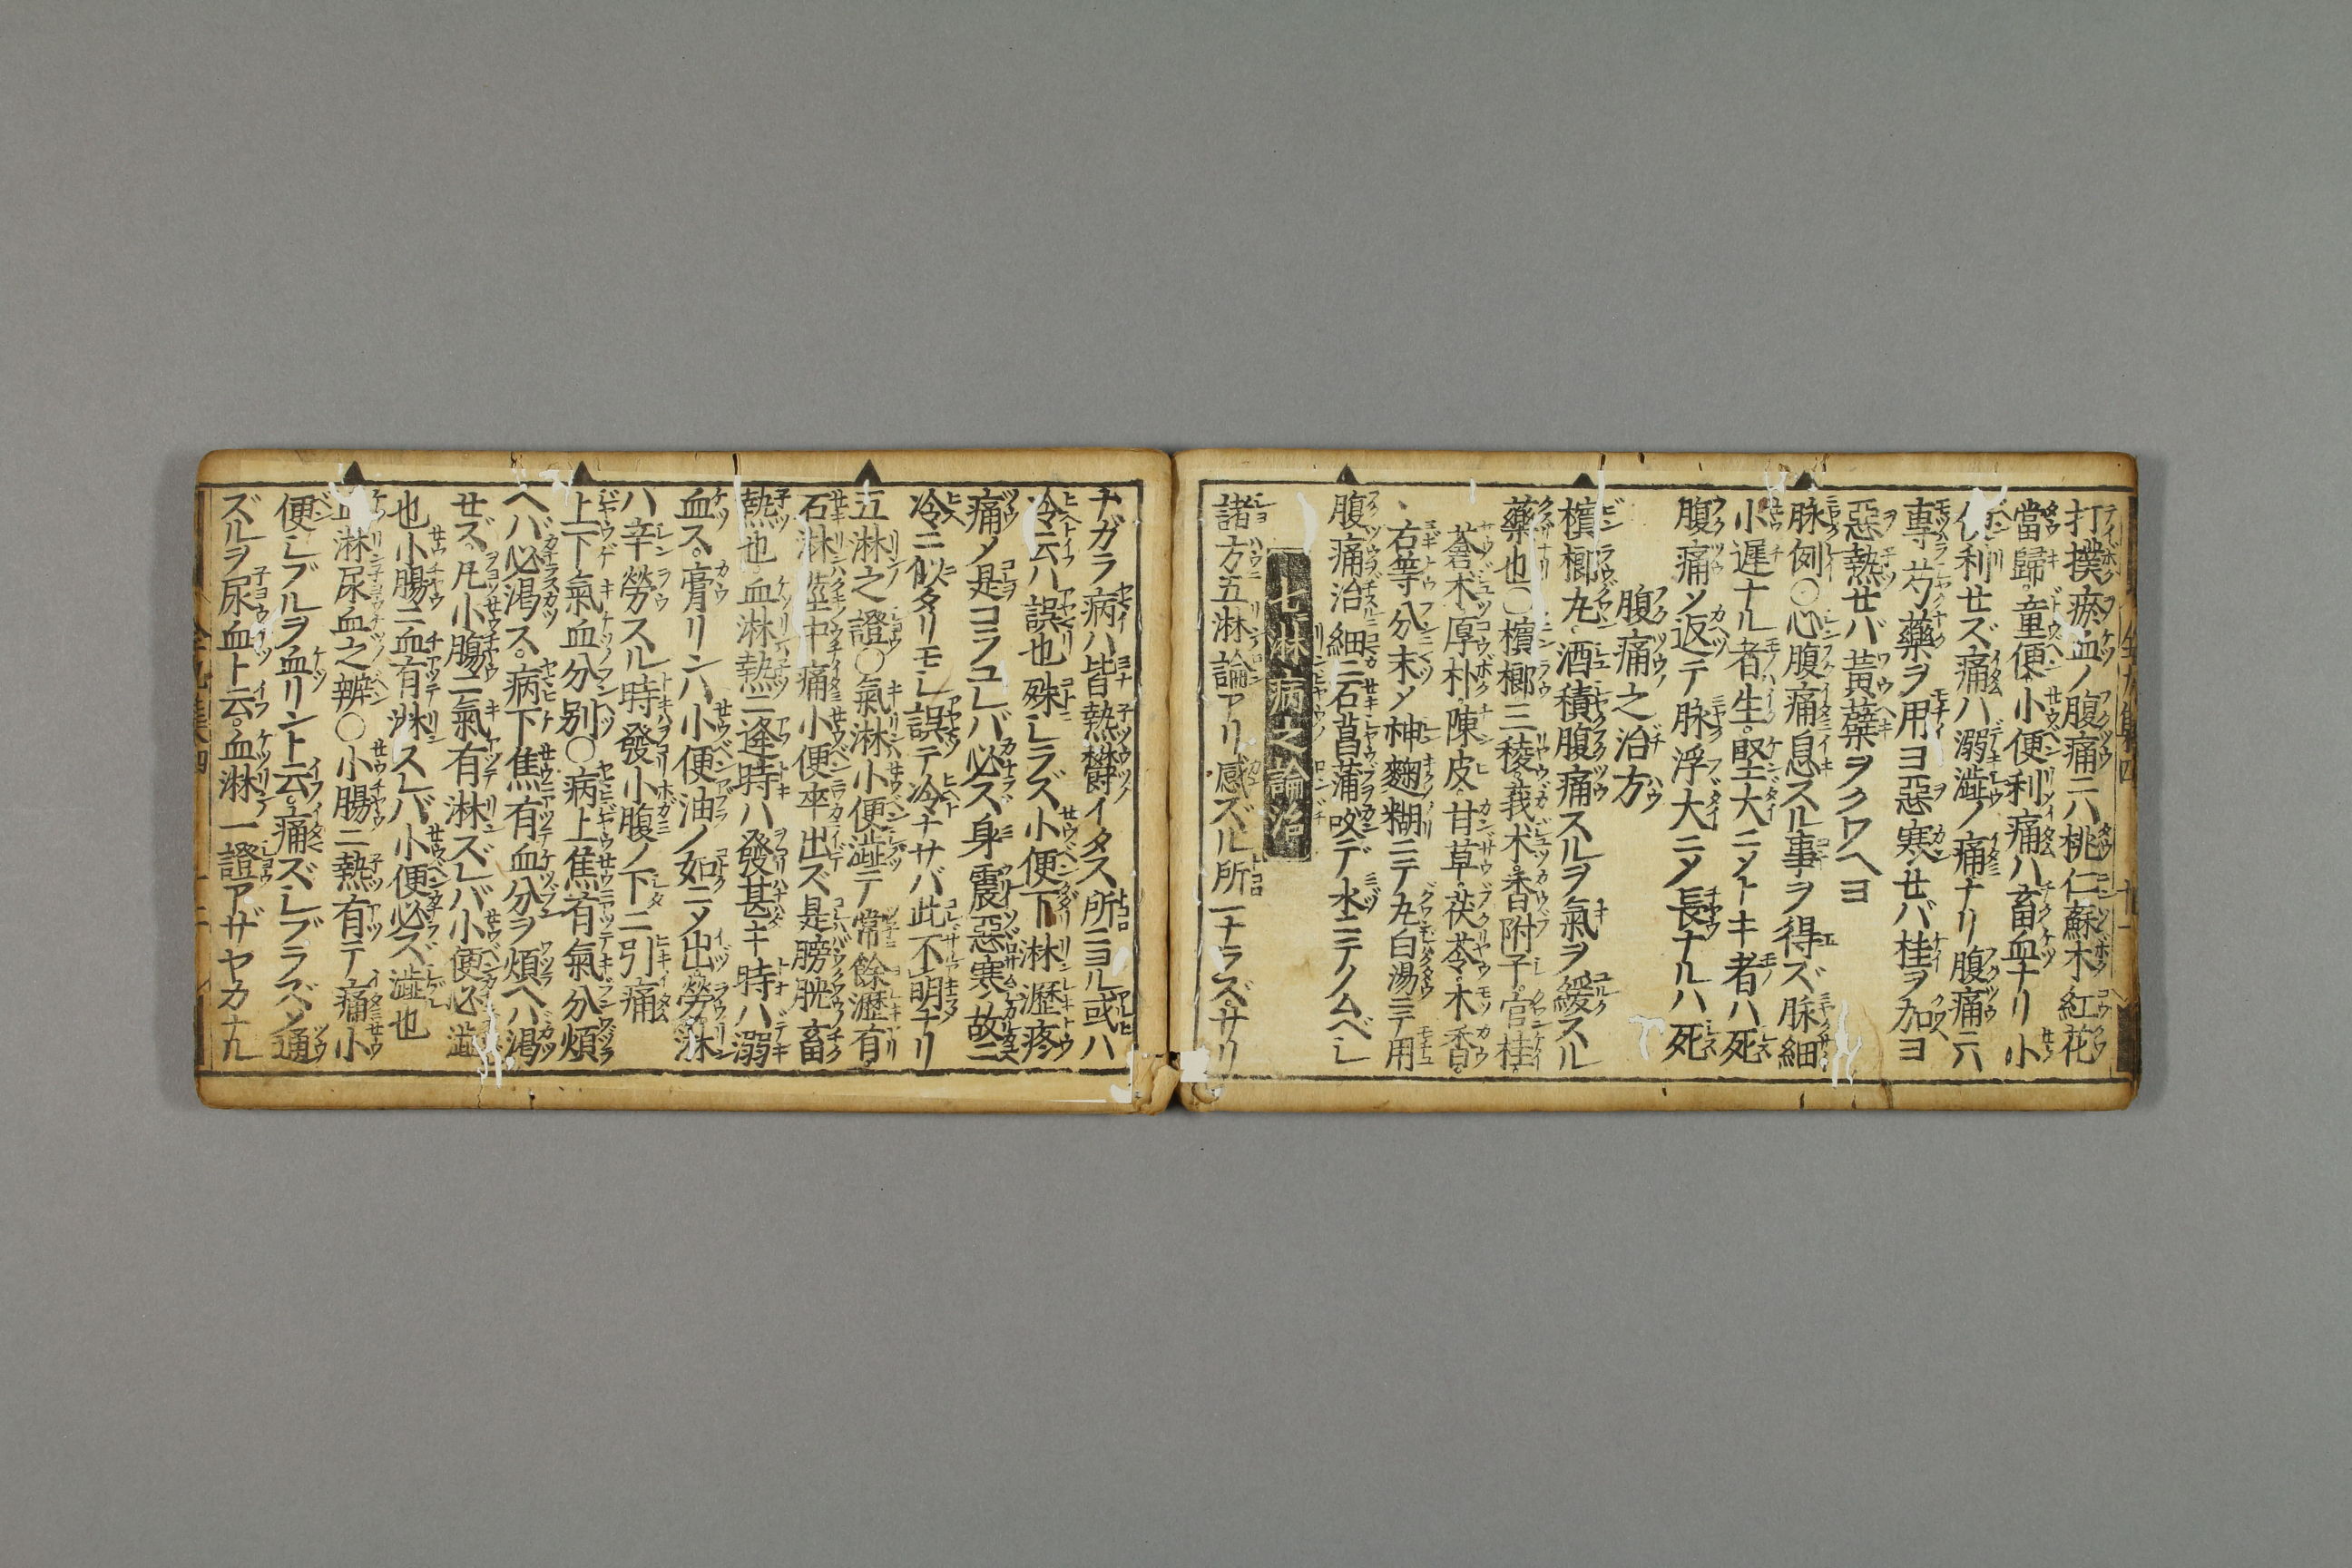 打撲瘀血ノ腹痛ニハ桃仁蘇木紅花
當歸童便小便利痛ハ畜血ナリ小
便利せズ痛ハ溺澁ノ痛ナリ腹痛ニハ
專芍藥ヲ用ヨ惡寒せバ桂ヲ加ヨ
惡熱せバ黃蘗ヲクワヘヨ
脉例○心腹痛息スル事ヲ得ズ脉細
小遲ナル者生堅大ニメトキ者ハ死
腹痛ソ返テ脉浮大ニメ長ナルハ死
腹痛之治方
檳榔丸酒積腹痛スルヲ氣ヲ緩スル
藥也○檳榔三稜莪朮香附子官桂
蒼朮厚朴陳皮甘草茯苓木香
右等分末メ神麴糊ニテ丸白湯ニテ用
腹痛治細ニ石菖蒲咬デ水ニテノムベシ
七淋病之論治
諸方五淋論アリ感ズル所一ナラズサリ
ナガラ病ハ皆熱欝イタス所ニヨル或ハ
冷云ハ誤也殊シラズ小便下淋瀝疼
痛メ是コラユレバ必ス身震惡寒ノ故ニ
冷ニ似タリモシ誤テ冷ナサバ此不明ナリ
五淋之證○氣淋小便澁テ常餘瀝有
石淋莖中痛小便卒出ズ是膀胱畜
熱也血淋熱ニ逢時ハ發甚キ時ハ溺
血ス膏リンハ小便油ノ如ニメ出勞淋
ハ辛勞スル時發小腹ノ下ニ引痛
上下氣血分別○病上焦有氣分煩
ヘバ必渴ス病下焦有血分ヲ煩ヘハ渴
せズ凡小腸ニ氣有淋ズレバ小便必澁
也小腸ニ血有淋スレバ小便必ズ澁也
血淋尿血之辨○小腸ニ熱有テ痛小
便シブルヲ血リント云痛ズシブラズソ通
ズルヲ尿血ト云血淋一證アザヤカナル